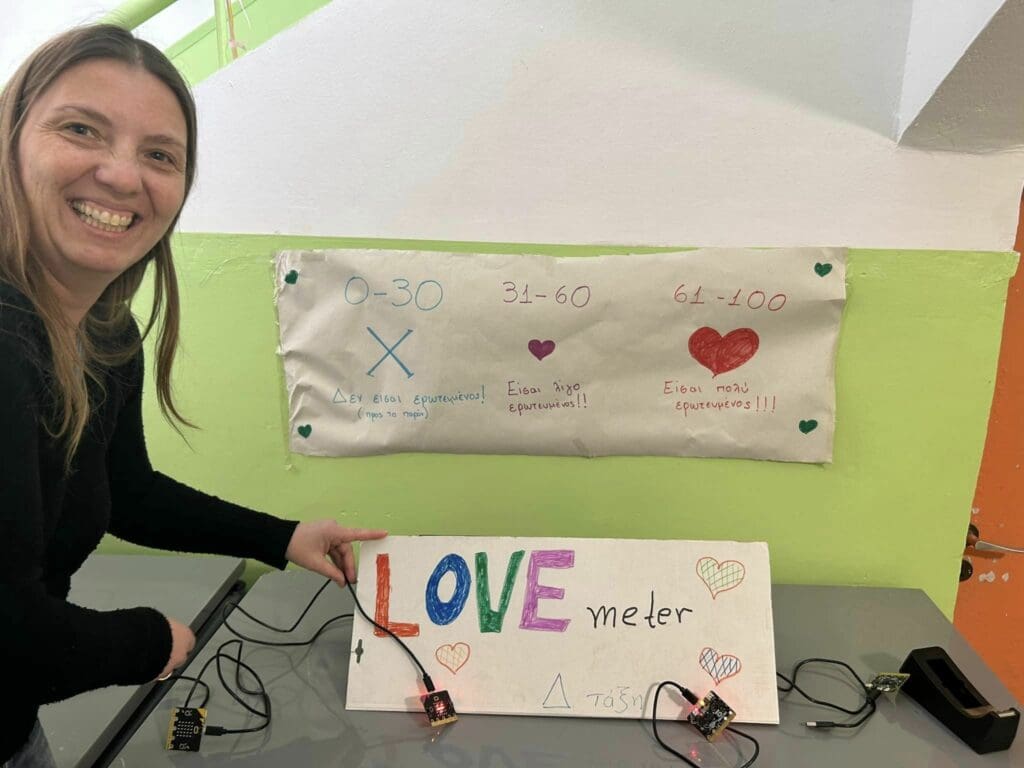 0-30 31-60 61-100
Δεν είσαι ερωτευμένος!
(προς το παρόν)
Είσαι λίγο
ερωτευμένος!!
Είσαι πολύ
ερωτευμένος!!!
LOVE meter
Δ τάξη